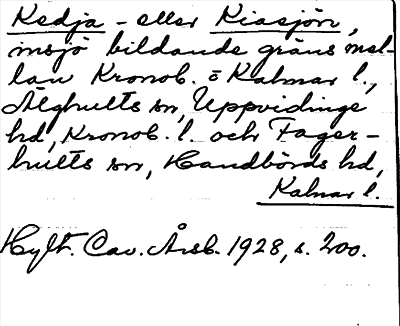 Kedja- eller Kiasjön,
insjö bildande gräns mel-
lan Kronob. o Kalmar l.,
Älghults sn, Uppvidinge
hd, Kronob. l. och Fager-
hults sn, Handbörds hd,
Kalmar l.
Hylt. Cav. Årsb. 1928, s. 200.